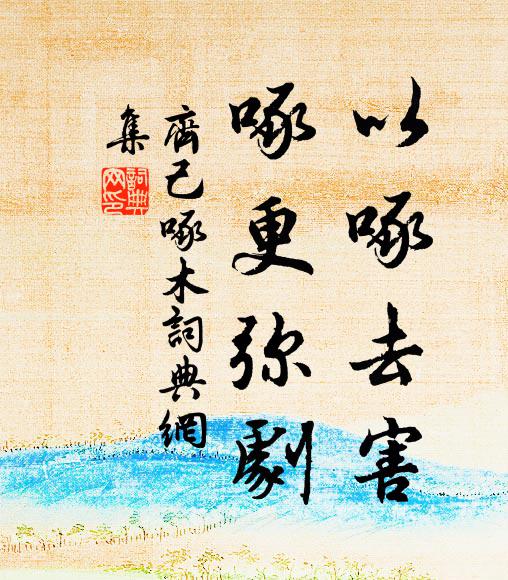 以啄去害
啄更弥劇
齊己啄木詞典網
集
詞典
网印